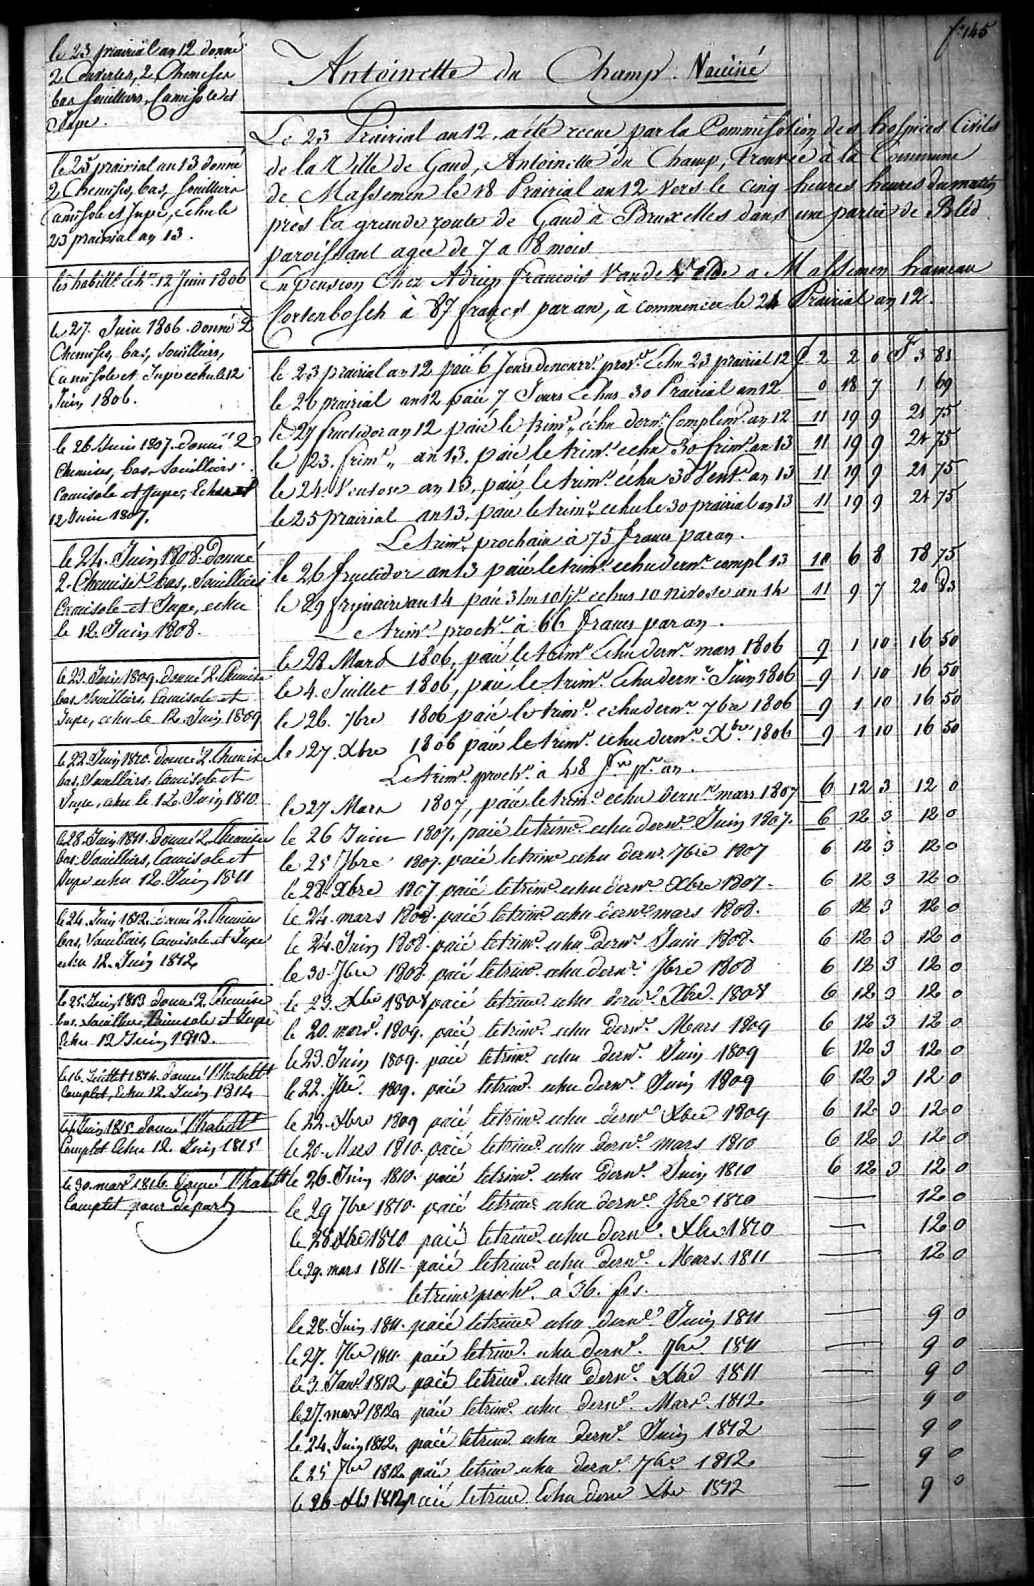 fo 145
le 23 prairial an 12 donné
2 Couvertes, 2 Chemises
bas souilliers, Camisole et
Jupe.
le 25 prairial an 13 donné
2 Chemises, bas, souilliers
Camisole et Jupe, echu le
23 prairial an 13.
les habillé éch. 12 Juin 1806
le 27. Juin 1806. donné 2
Chemises, bas, souilliers,
Camisole et Jupe echu le 12
Juin 1806.
le 26 Juin 1807. donné 2
Chemises, bas, Souilliers
Camisole et Jupe, Echu
12 Juin 1807.
le 24. Juin 1808. donné
2. Chemises bas, Souilliers
Camisole et Jupe, echu
le 12 Juin 1808.
le 23. Juin 1809. donné 2. Chemise
bas Souilliers, Camisole et
Jupe, echu le 12. Juin 1809
le 22. Juin 1810. donné 2. Chemise
bas, Souilliers, Camisole et
Jupe, echu le 12. Juin 1810
le 28. Juin 1811. donné 2. Chemises
bas Souilliers, Camisole et
Jupe echu 12. Juin 1811
le 24. Juin 1812. donné 2. Chemises
bas, Souilliers, Camisole et Jupe
echu 12. Juin 1812
le 25. Juin 1813 donné 2. Chemise
bas. Souilliers, Camisole et Jupe
Echu 12 Juin 1813.
le 16. Juillet 1814. donné l'habillt
Complet, Echu 12. Juin 1814
Juin 1815 donné l'habillt
Complet Echu 12. Juin 1815
le 30. mars 1816 l'habillt
Complet pour départ
Antoinette du Champ. Vacciné
Le 23 Prairial an 12. a été recue par la Commission des hospices Civils
de la Ville de Gand, Antoinette du Champ, trouvée à la Commune
de Massemen le 18 Prairial an 12 vers le cinq heures heures du matin
près la grande route de Gand à Bruxelles dans une partie de Bled
paroissant agée de 7 a 8 mois
En pension Chez Adrien francois Vande Velde a Massemen hameau
Cortenbosch à 87 francs par an, à commencer le 24 Prairial an 12.
le 23 prairial an 12 paié 6 Jours de nourr. prov. Echu 23 prairial 12 £ 2 2 0 F 3 83
le 26 prairial an 12 paié 7 Jours Echus 30 Prairial an 12 0 18 7 1 69
le 27 fructidor an 12 paié le trim. échu dern. Complim. an 12 11 19 9 21 75
le 23. frim. an 13. paié le trim. echu 30 frim. an 13 11 19 9 21 75
le 24. Ventose an 13, paié le trim. échu 30 Vent. an 13 11 19 9 21 75
le 25 prairial an 13. paié le trim. echu le 30 prairial an 13 11 19 9 21 75
Le trim. prochain à 75 francs par an.
le 26 fructidor an 13 paié le trim. echu dern. compl. 13 10 6 8 18 75
le 29 frimaire an 14 paié 3 m 10 j. echus 10 nivose an 14 11 9 7 20 83
Le trim. proch. à 66 francs par an.
le 28 Mars 1806, paié le trim. Echu dern. mars 1806 9 1 10 16 50
le 4. Juillet 1806, paié le trim. Echu dern. Juin 1806 9 1 10 16 50
le 26. 7bre 1806 paié le trim. echu dern. 7bre 1806 9 1 10 16 50
le 27. Xbre 1806 paié le trim. echu dern. Xbre 1806 9 1 10 16 50
Le trim. proch. à 48 frs pr. an.
le 27 Mars 1807, paié le trim. echu dern. mars 1807 6 12 3 12 0
le 26 Juin 1807. paié le trim. echu dern. Juin 1807. 6 12 3 12 0
le 25 7bre 1807. paié le trim. echu dern. 7bre 1807 6 12 3 12 0
le 28. Xbre 1807. paié le trim. echu dern. Xbre 1807. 6 12 3 12 0
le 24. mars 1808. paié le trim. echu dern. mars 1808. 6 12 3 12 0
le 24. Juin 1808. paié le trim. echu dern. Juin 1808. 6 12 3 12 0
le 30. 7bre 1808 paié le trim. echu dern. 7bre 1808 6 12 3 12 0
le 23. Xbre 1808 paié le trim. echu dern. Xbre. 1808 6 12 3 12 0
le 20. mars. 1809. paié le trim. echu dern. Mars 1809 6 12 3 12 0
le 23. Juin 1809. paié le trim. echu dern. Juin 1809 6 12 3 12 0
le 22. 7bre. 1809. paié le trim. echu dern. Juin 1809 6 12 3 12 0
le 22. Xbre 1809 paié le trim. echu dern. Xbre 1809 6 12 3 12 0
le 20. Mars 1810. paié le trim. echu dern. mars 1810 6 12 3 12 0
le 26. Juin 1810. paié le trim. echu dern. Juin 1810 6 12 3 12 0
le 29 7bre 1810. paié le trim. echu dern. 7bre 1810 — 12 0
le 28 Xbre 1810 paié le trim. echu dern. Xbre 1810 — 12 0
le 29. mars 1811. paié le trim. echu dern. Mars. 1811 — 12 0
le trim. proch. à 36. frs.
le 28. Juin 1811. paié le trim. echu dern. Juin 1811 — 9 0
le 27. 7bre 1811. paié le trim. echu dern. 7bre 1811 — 9 0
le 3. Janv. 1812 paié le trim. echu dern. Xbre 1811 — 9 0
le 27. mars 1812. paié le trim. echu dern. Mars. 1812. — 9 0
le 24. Juin 1812. paié le trim. echu dern. Juin 1812 — 9 0
le 25 7bre 1812. paié le trim. echu dern. 7bre 1812. — 9 0
le 26. Xbre 1812 paié le trim. Echu dern. Xbre 1812 — 9 0